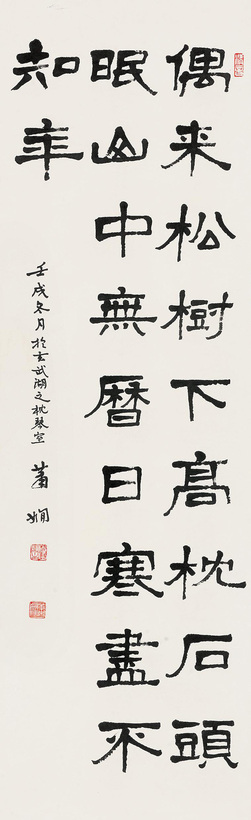 偶来松樹下高枕石頭
眠山中無曆日寒盡不
知年
壬戌冬月於玄武湖之枕琴室 蕭嫻